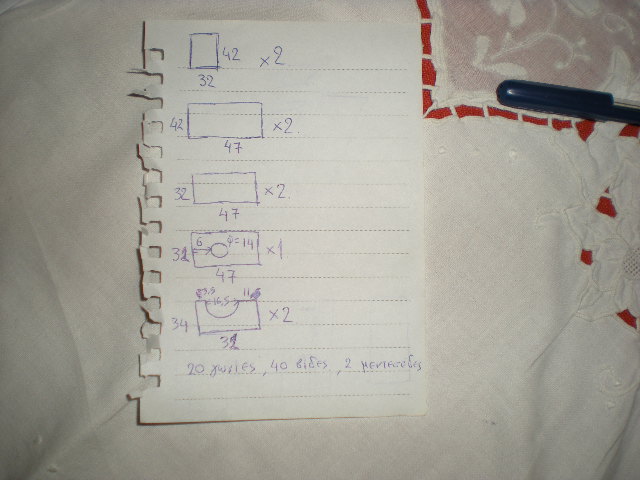 42 ×2
32
42 ×2.
47
32 ×2.
47
6 φ=14
32 ×1
47
3,5 16,5 11
34 ×2
32
20 γωνίες, 40 βίδες, 2 μεντεσέδες